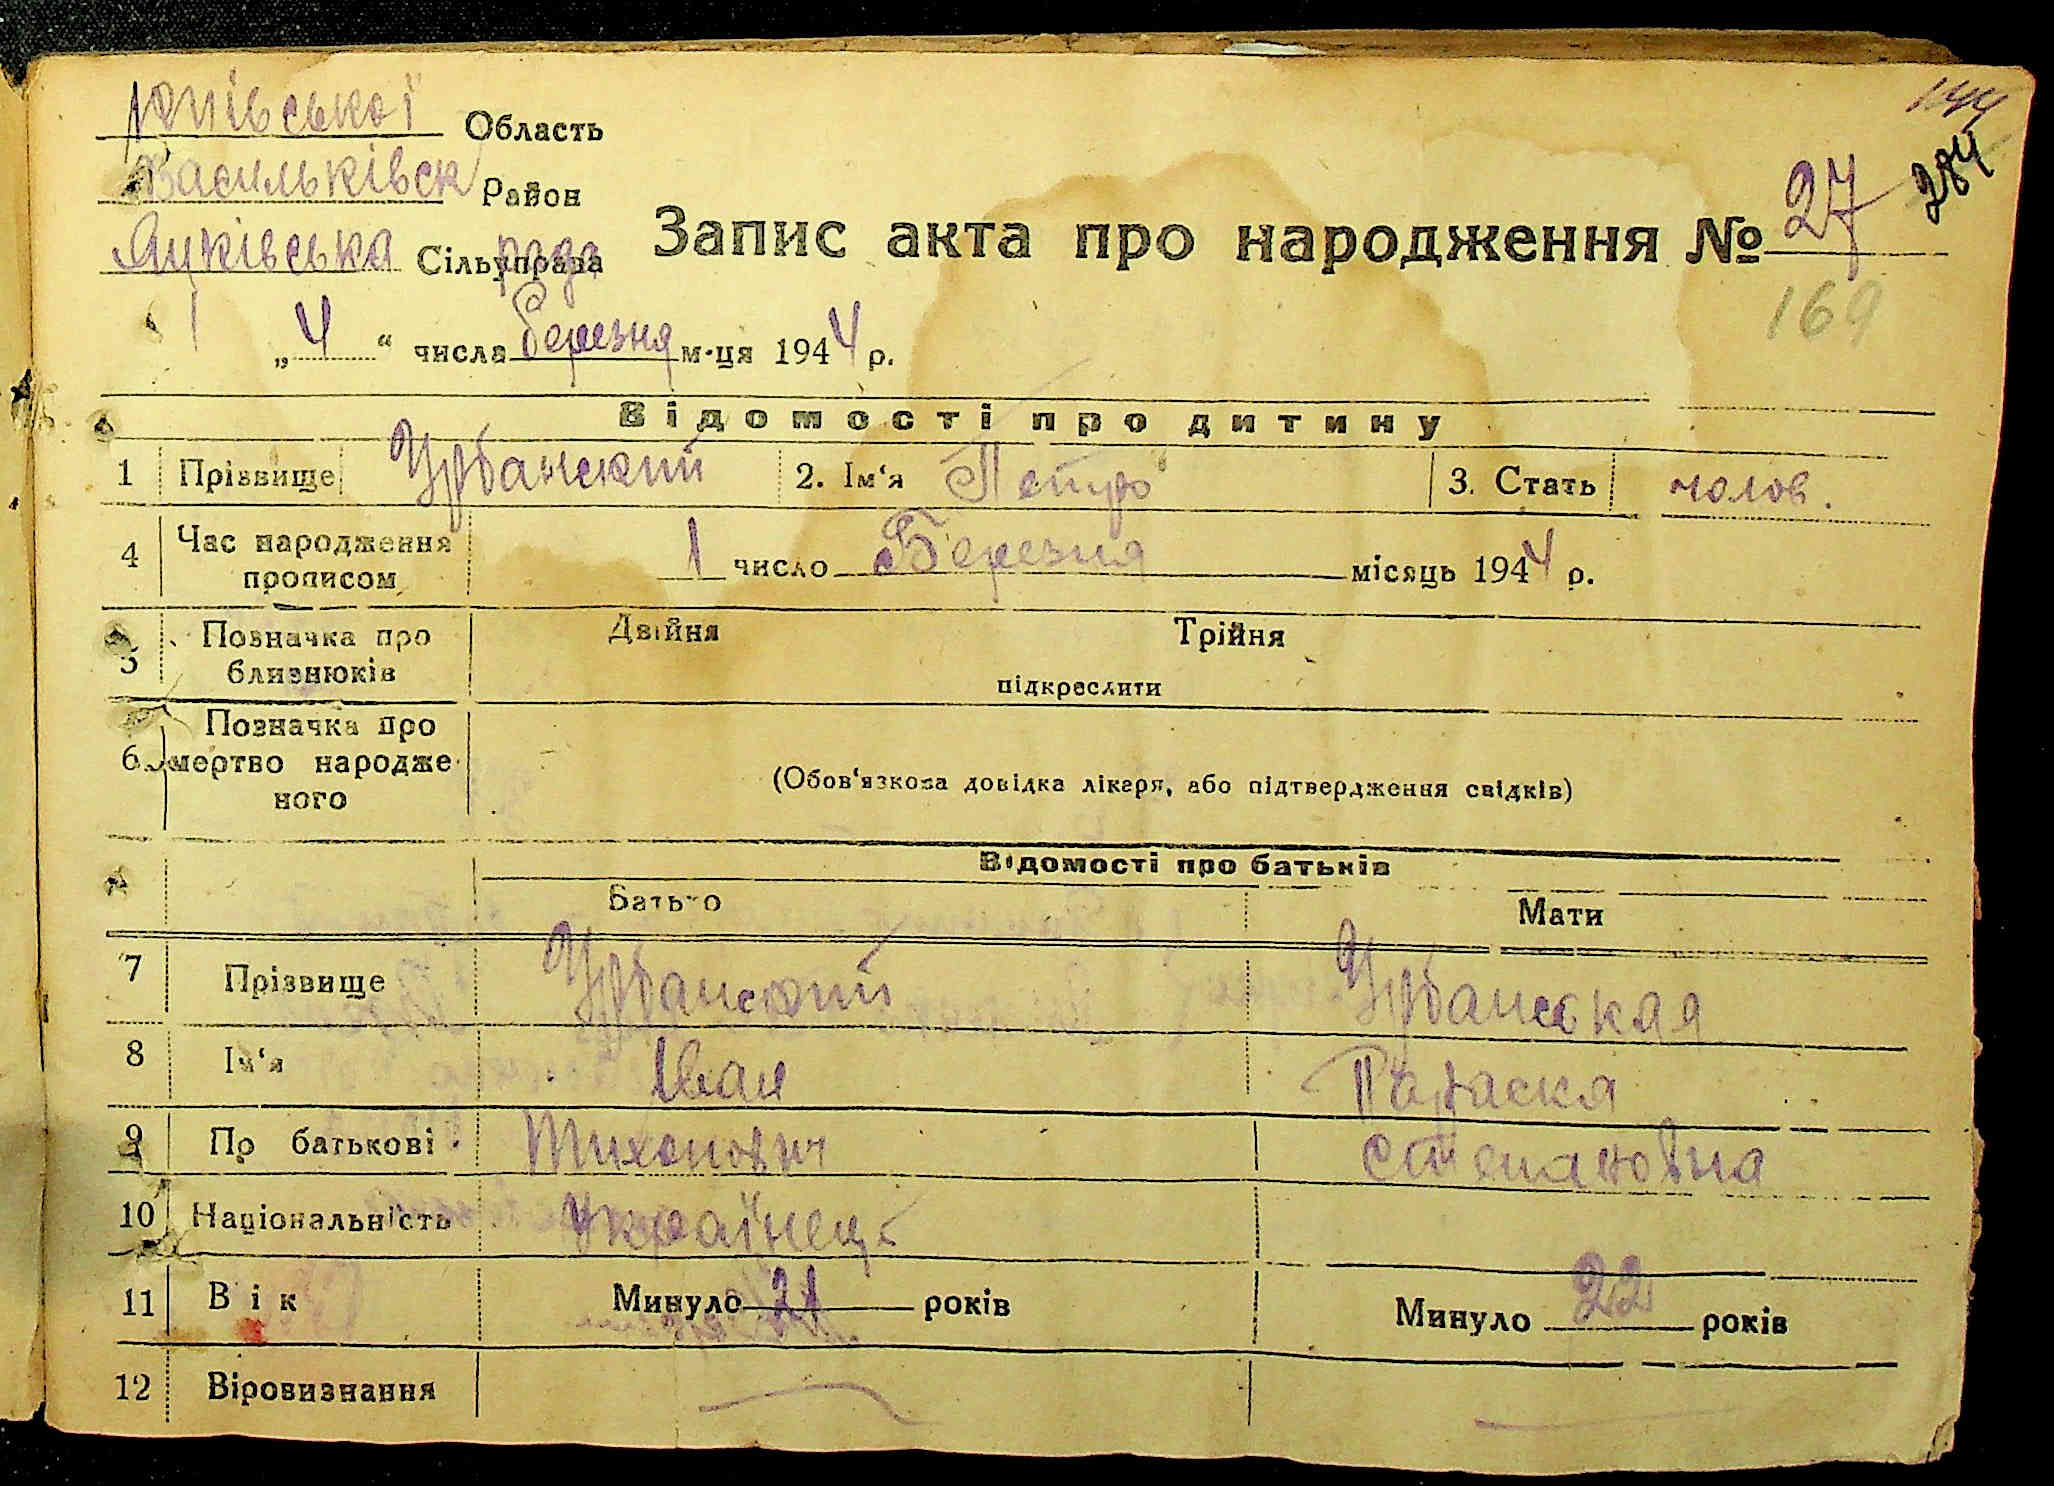 Область
Васильківск Район
Яцківська Сільуправа рада
Запис акта про народження № 27
144
284
169
„ 4 “ числа березня м-ця 1944 р.
Відомості про дитину
1 Прізвище Урбанский 2. Ім‘я Петро 3. Стать чолов.
4 Час народження прописом 1 число Березня місяць 1944 р.
5 Позначка про близнюків Двійня Трійня
підкреслити
6 Позначка про мертво народже ного
(Обов‘язкова довідка лікаря, або підтвердження свідків)
Відомості про батьків
Батько Мати
7 Прізвище Урбанский Урбанськая
8 Ім‘я Іван Параска
9 По батькові Тихонович Степановна
10 Національність Українець
11 Вік Минуло 21 років Минуло 22 років
12 Віровизнання